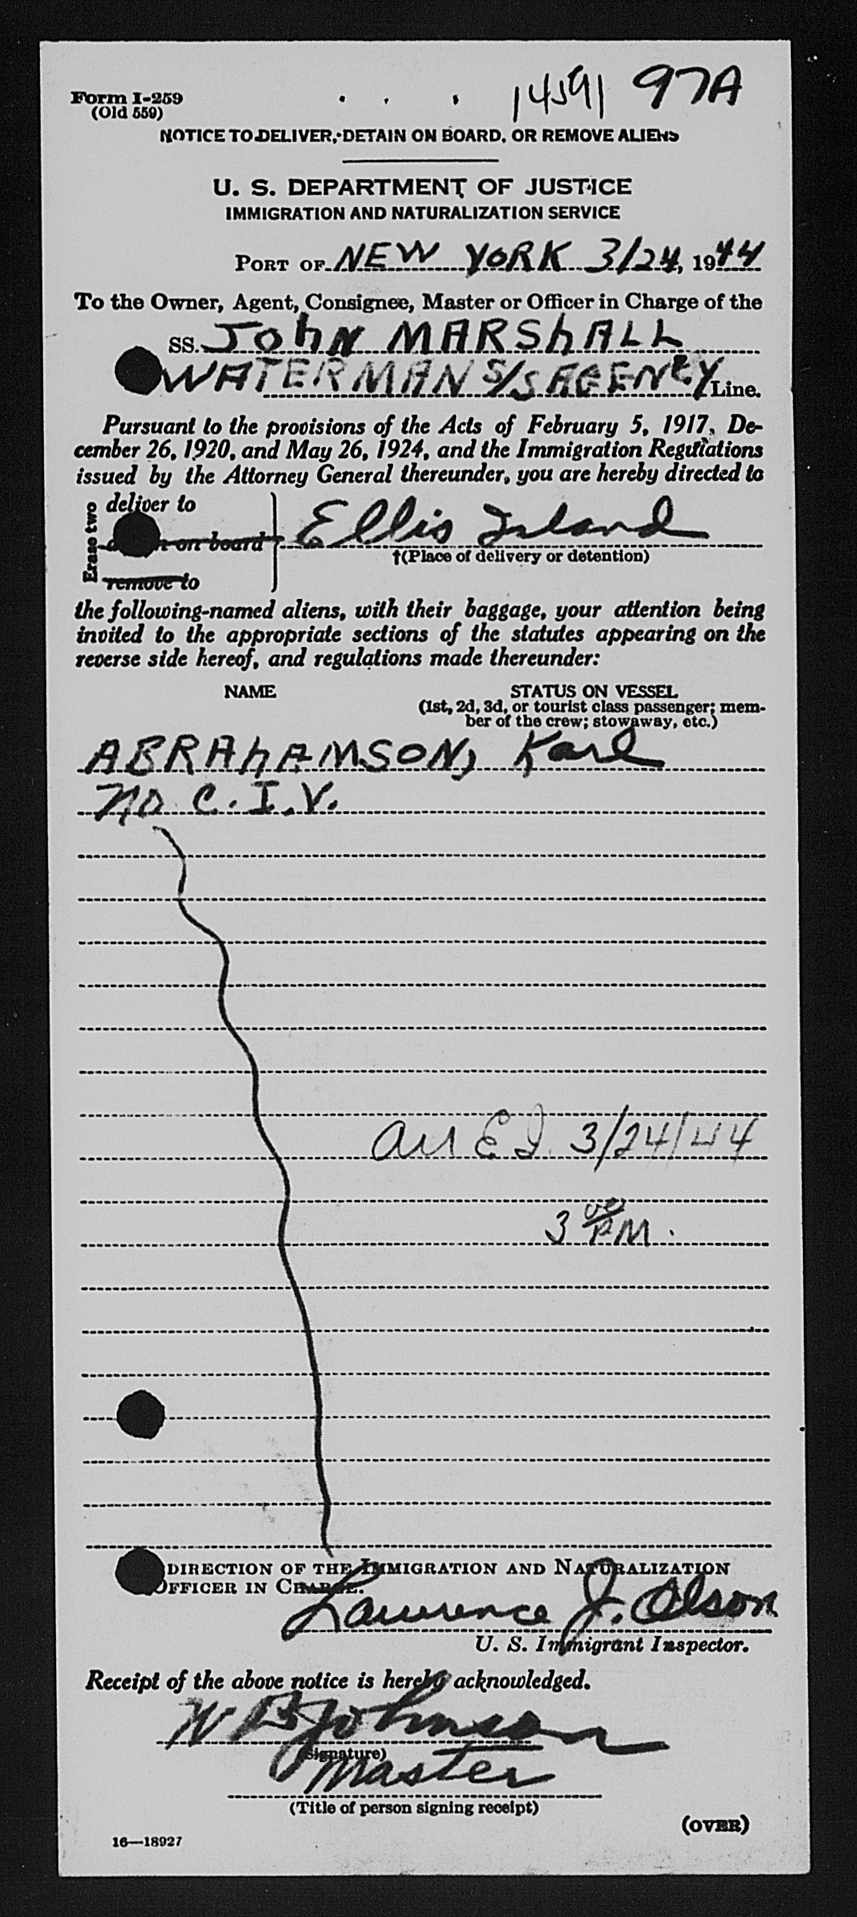 Form I-259
(Old 559)
14591 97A
NOTICE TO DELIVER, DETAIN ON BOARD, OR REMOVE ALIENS
U. S. DEPARTMENT OF JUSTICE
IMMIGRATION AND NATURALIZATION SERVICE
PORT OF NEW YORK 3/24, 1944
To the Owner, Agent, Consignee, Master or Officer in Charge of the
SS. JOHN MARSHALL
WATERMAN S/S AGENCY Line.
Pursuant to the provisions of the Acts of February 5, 1917, De-
cember 26, 1920, and May 26, 1924, and the Immigration Regulations
issued by the Attorney General thereunder, you are hereby directed to
Erase two
deliver to
on board
remove to
Ellis Island
†(Place of delivery or detention)
the following-named aliens, with their baggage, your attention being
invited to the appropriate sections of the statutes appearing on the
reverse side hereof, and regulations made thereunder:
NAME STATUS ON VESSEL
(1st, 2d, 3d, or tourist class passenger; mem-
ber of the crew; stowaway, etc.)
ABRAHAMSON, Karl
No C.I.V.
arr E I. 3/24/44
3 00 PM.
DIRECTION OF THE IMMIGRATION AND NATURALIZATION
OFFICER IN CHARGE.
Lawrence J. Olson
U. S. Immigrant Inspector.
Receipt of the above notice is hereby acknowledged.
W B Johnson
(Signature)
Master
(Title of person signing receipt)
(OVER)
16—18927